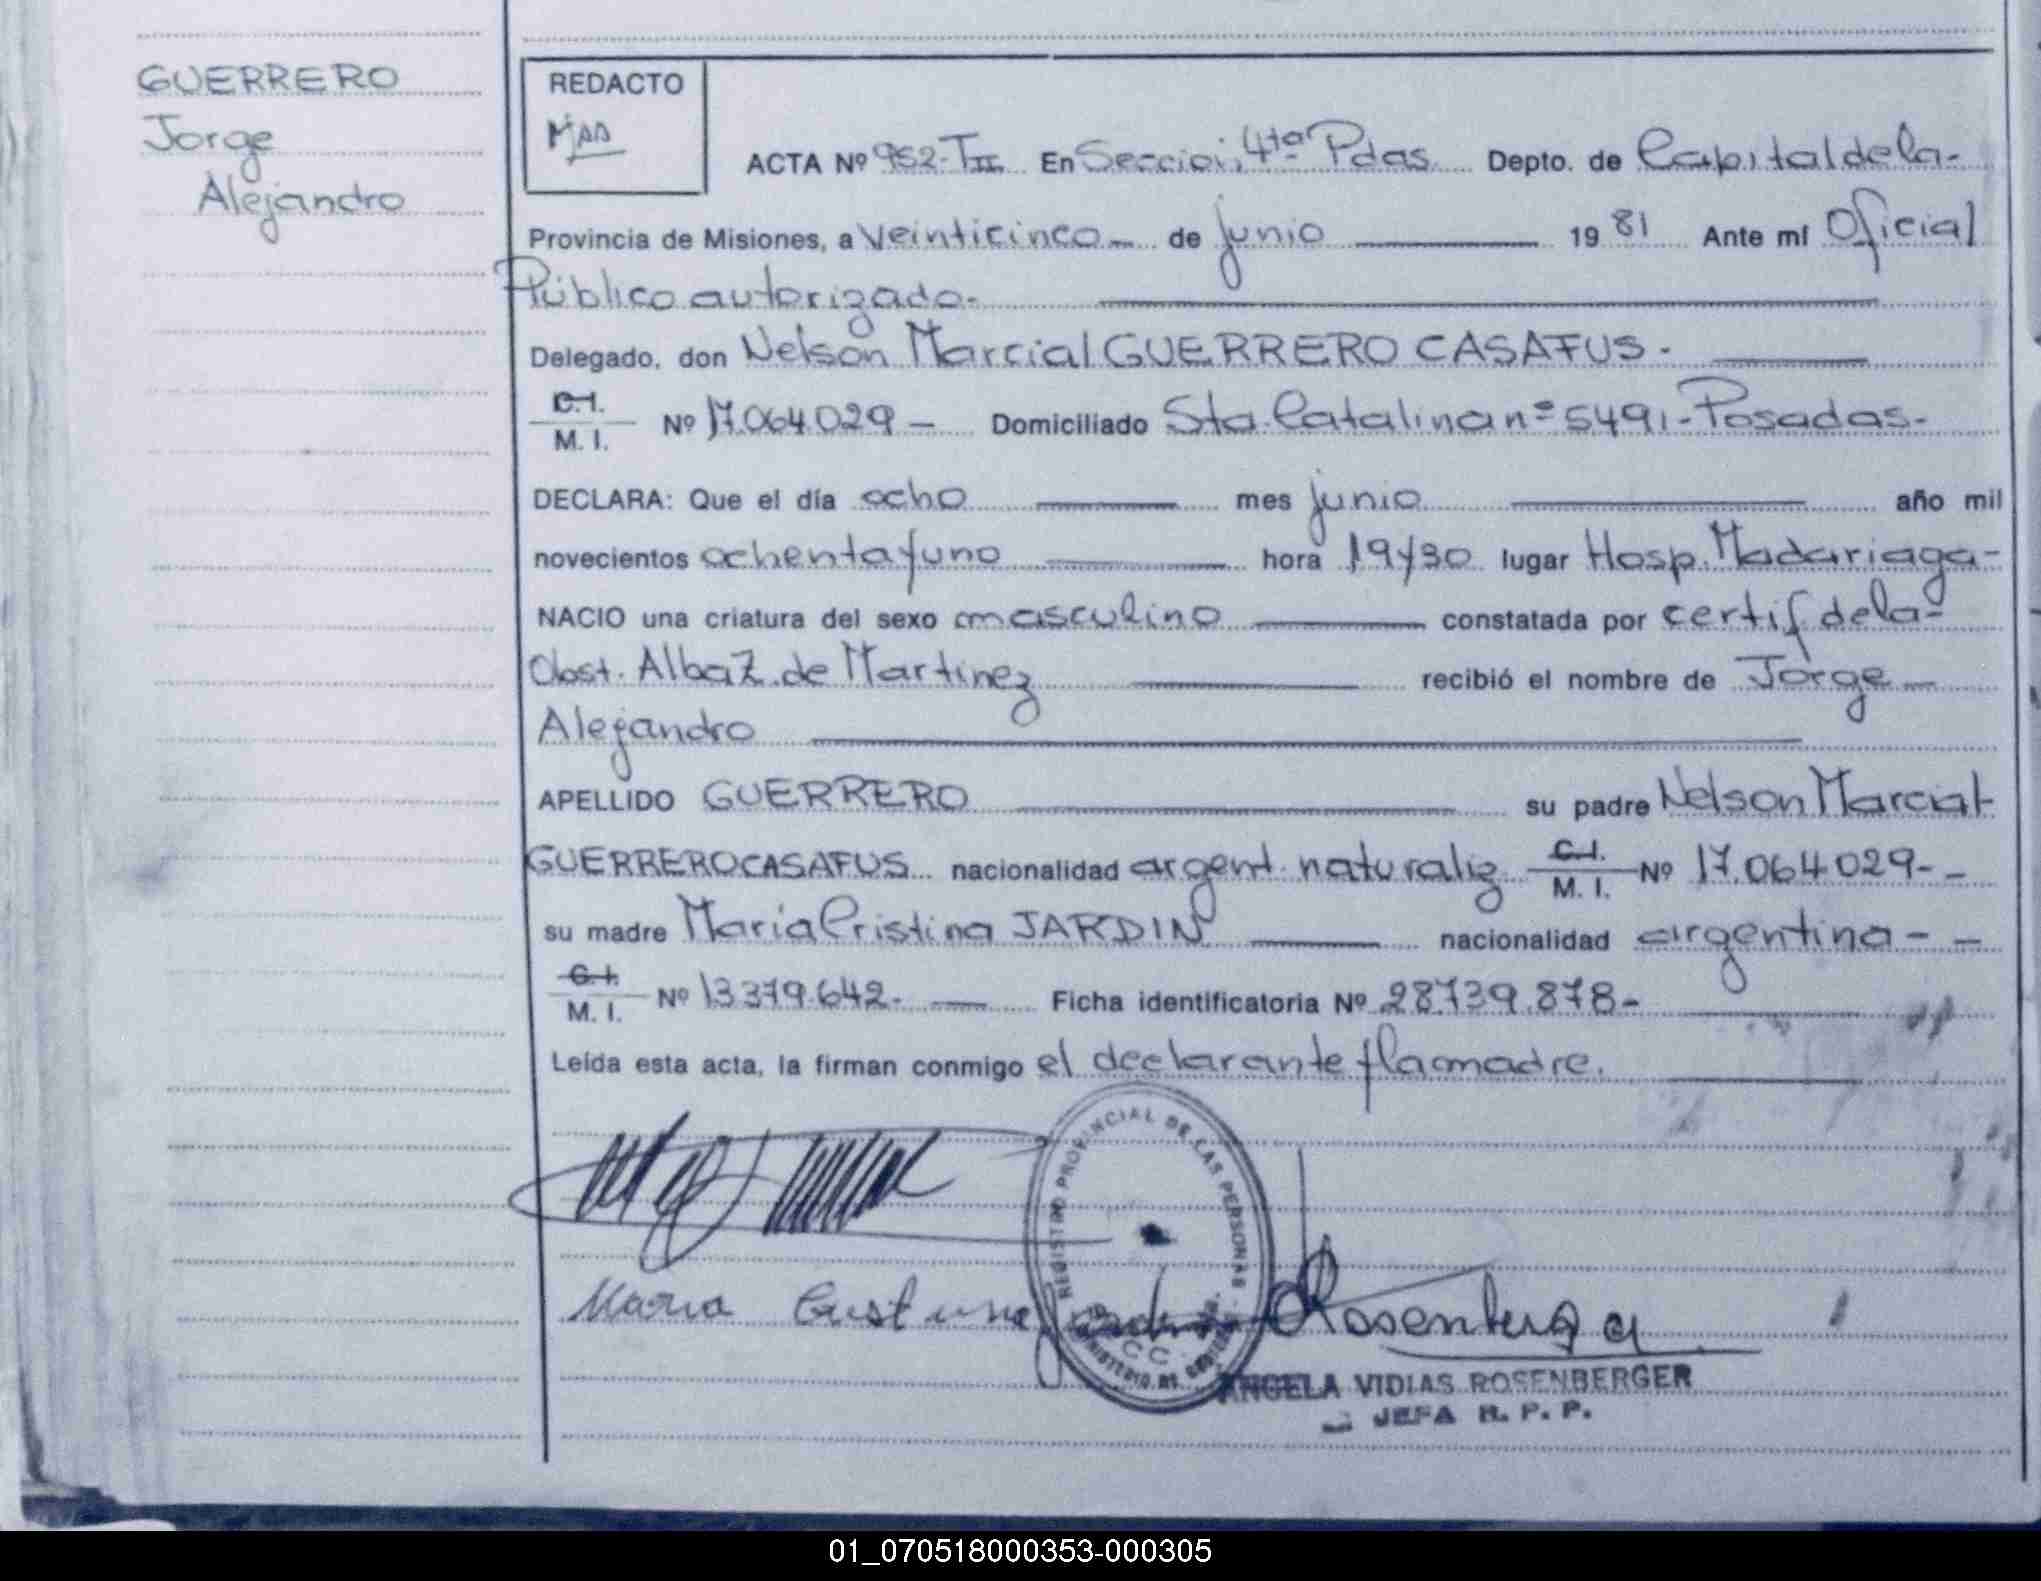 GUERRERO
Jorge
Alejandro
REDACTO
ACTA Nº 952-TII En Sección 4ta Pdas Depto. de Capital de la-
Provincia de Misiones, a veinticinco de junio 1981 Ante mí Oficial
Público autorizado-
Delegado, don Nelson Marcial GUERRERO CASAFUS.
C.I.
M. I. Nº 17.064.029- Domiciliado Sta. Catalina nº 5491-Posadas-
DECLARA: Que el día ocho mes junio año mil
novecientos ochenta y uno hora 19y30 lugar Hosp. Madariaga-
NACIO una criatura del sexo masculino constatada por certif de la-
Obst. Alba Z. de Martinez recibió el nombre de Jorge
Alejandro
APELLIDO GUERRERO su padre Nelson Marcial
GUERRERO CASAFUS nacionalidad argent. naturaliz C.I.
M. I. Nº 17.064.029--
su madre María Cristina JARDIN nacionalidad argentina--
C.I.
M. I. Nº 13.379.642- Ficha identificatoria Nº 28.739.878-
Leída esta acta, la firman conmigo el declarante y la madre.
REGISTRO PROVINCIAL DE LAS PERSONAS
MINISTERIO DE
Maria Cristina
Rosenberger
ANGELA VIDIAS ROSENBERGER
JEFA R. P. P.
01_070518000353-000305